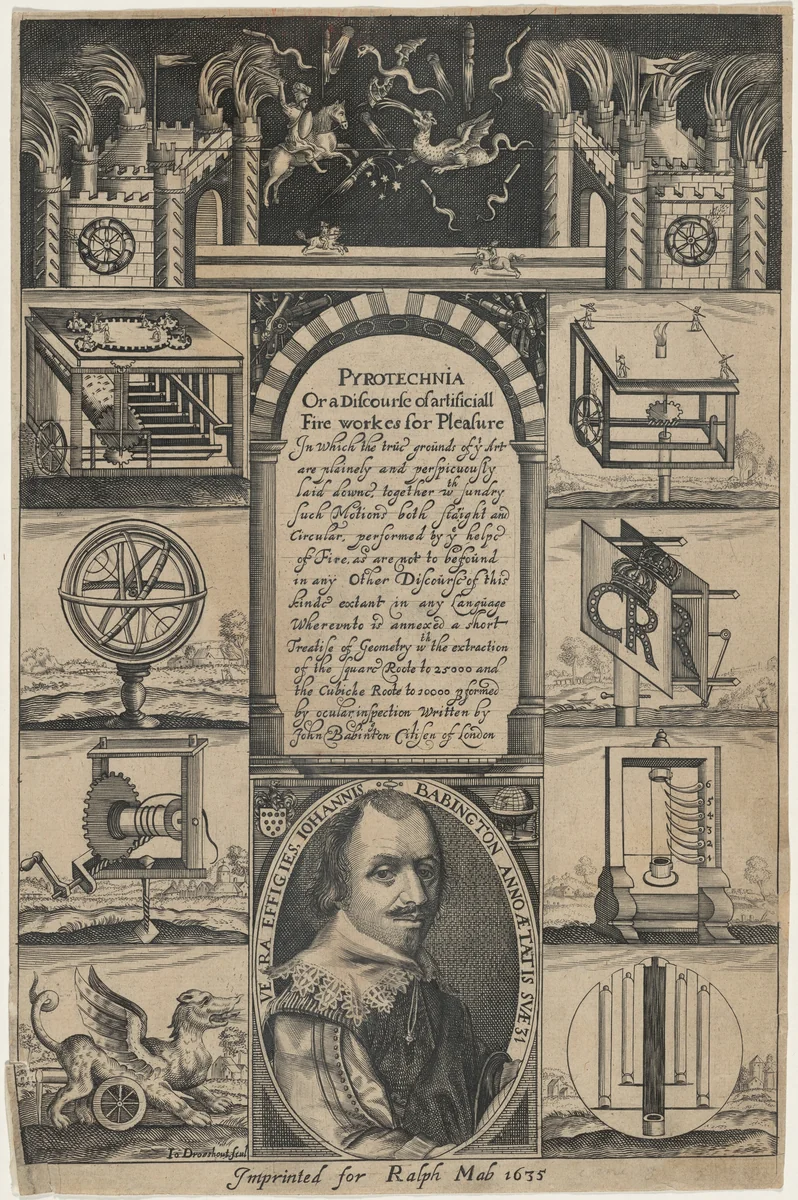 PYROTECHNIA
Or a Discourse of artificiall
Fire workes for Pleasure
In Which the true grounds of yͤ Art
are plainely and perspicuously
laid downe, together wᵗʰ sundry
such Motions both staight and
Circular, performed by yͤ helpe
of Fire, as are not to be found
in any Other Discourse of this
kinde extant in any Language
Wherevnto is annexed a short
Treatise of Geometry wᵗʰ the extraction
of the square Roote to 25000 and
the Cubicke Roote to 10000 pformed
by ocular inspection Written by
John Babinton Citisen of London
CR
6
5
4
3
2
1
VERA EFFIGIES IOHANNIS BABINGTON ANNO ÆTATIS SVÆ 31
Io Droeshout, scul
Imprinted for Ralph Mab 1635